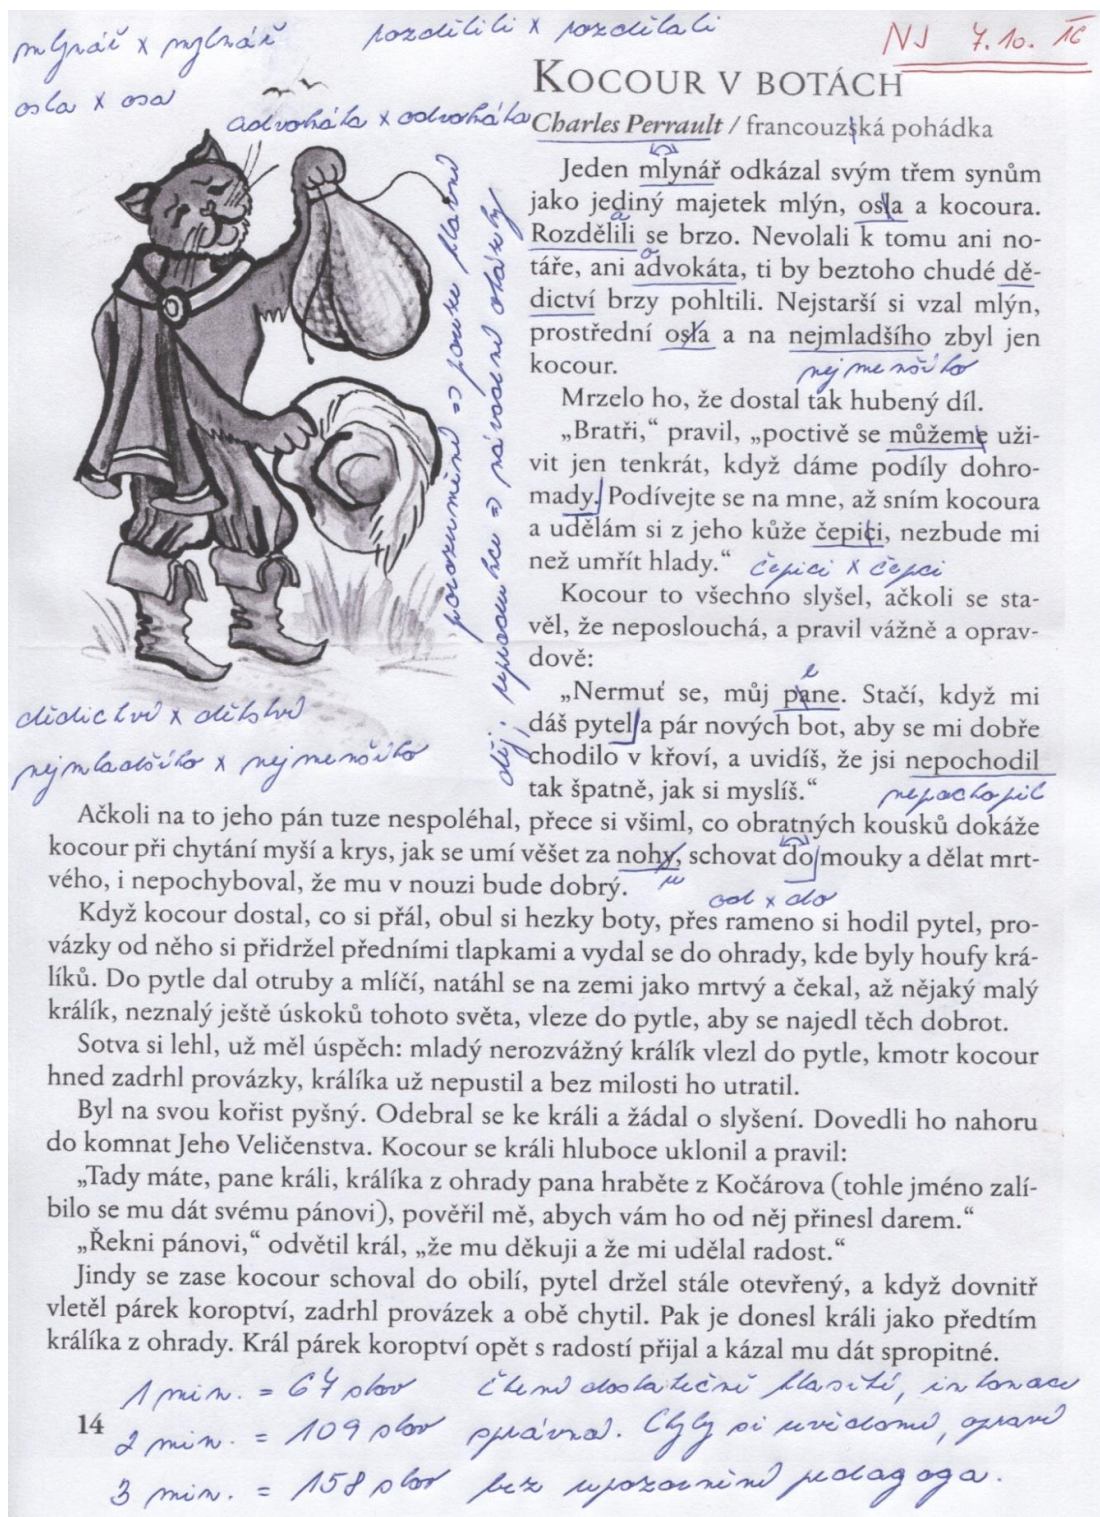 mlynář x mylnář
rozdělili x rozdělali
NJ 7.10. 16
osla x osa
advokáta x odvokáta
KOCOUR V BOTÁCH
Charles Perrault / francouzská pohádka
Jeden mlynář odkázal svým třem synům
jako jediný majetek mlýn, osla a kocoura.
a
Rozdělili se brzo. Nevolali k tomu ani no-
o
táře, ani advokáta, ti by beztoho chudé dě-
dictví brzy pohltili. Nejstarší si vzal mlýn,
prostřední osla a na nejmladšího zbyl jen
kocour.
nejmenšího
Mrzelo ho, že dostal tak hubený díl.
„Bratři,“ pravil, „poctivě se můžeme uži-
vit jen tenkrát, když dáme podíly dohro-
mady. Podívejte se na mne, až sním kocoura
a udělám si z jeho kůže čepici, nezbude mi
než umřít hlady.“
čepici x čepci
Kocour to všechno slyšel, ačkoli se sta-
věl, že neposlouchá, a pravil vážně a oprav-
dově:
e
„Nermuť se, můj pane. Stačí, když mi
dáš pytel a pár nových bot, aby se mi dobře
chodilo v křoví, a uvidíš, že jsi nepochodil
tak špatně, jak si myslíš.“
nepochopil
porozumění => pouze hlavní
děj, reprodukce => návodné otázky
dědictví x dětství
nejmladšího x nejmenšího
Ačkoli na to jeho pán tuze nespoléhal, přece si všiml, co obratných kousků dokáže
kocour při chytání myší a krys, jak se umí věšet za nohy, schovat do mouky a dělat mrt-
vého, i nepochyboval, že mu v nouzi bude dobrý.
u
od x do
Když kocour dostal, co si přál, obul si hezky boty, přes rameno si hodil pytel, pro-
vázky od něho si přidržel předními tlapkami a vydal se do ohrady, kde byly houfy krá-
líků. Do pytle dal otruby a mlíčí, natáhl se na zemi jako mrtvý a čekal, až nějaký malý
králík, neznalý ještě úskoků tohoto světa, vleze do pytle, aby se najedl těch dobrot.
Sotva si lehl, už měl úspěch: mladý nerozvážný králík vlezl do pytle, kmotr kocour
hned zadrhl provázky, králíka už nepustil a bez milosti ho utratil.
Byl na svou kořist pyšný. Odebral se ke králi a žádal o slyšení. Dovedli ho nahoru
do komnat Jeho Veličenstva. Kocour se králi hluboce uklonil a pravil:
„Tady máte, pane králi, králíka z ohrady pana hraběte z Kočárova (tohle jméno zalí-
bilo se mu dát svému pánovi), pověřil mě, abych vám ho od něj přinesl darem.“
„Řekni pánovi,“ odvětil král, „že mu děkuji a že mi udělal radost.“
Jindy se zase kocour schoval do obilí, pytel držel stále otevřený, a když dovnitř
vletěl párek koroptví, zadrhl provázek a obě chytil. Pak je donesl králi jako předtím
králíka z ohrady. Král párek koroptví opět s radostí přijal a kázal mu dát spropitné.
1 min. = 67 slov čtení dostatečně hlasité, intonace
14
2 min. = 109 slov správná. Chyby si uvědomí, opraví
3 min. = 158 slov bez upozornění pedagoga.